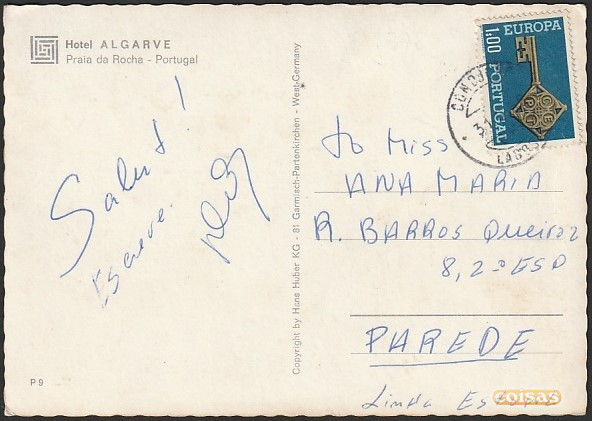 Hotel ALGARVE
Praia da Rocha - Portugal
Salut!
Escreve.
P 9
Copyright by Hans Huber KG - 81 Garmisch-Partenkirchen - West-Germany
1$00
EUROPA
PORTUGAL
CEPT
LAGOS
to Miss
ANA MARIA
R. BARROS Queiroz
8, 2º ESD
PAREDE
Linha
coisas